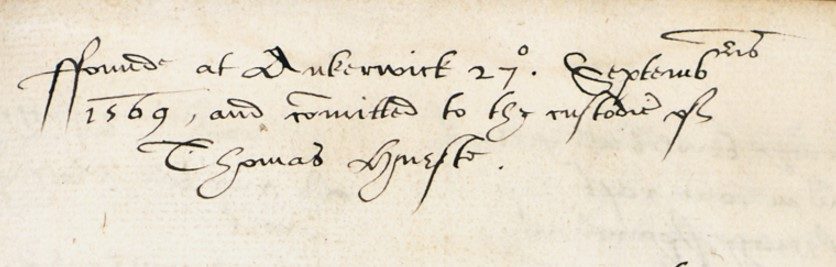 ffounde at Ankerwick 27º. Septemb^ris
1569, and comitted to the custodie of
Thomas